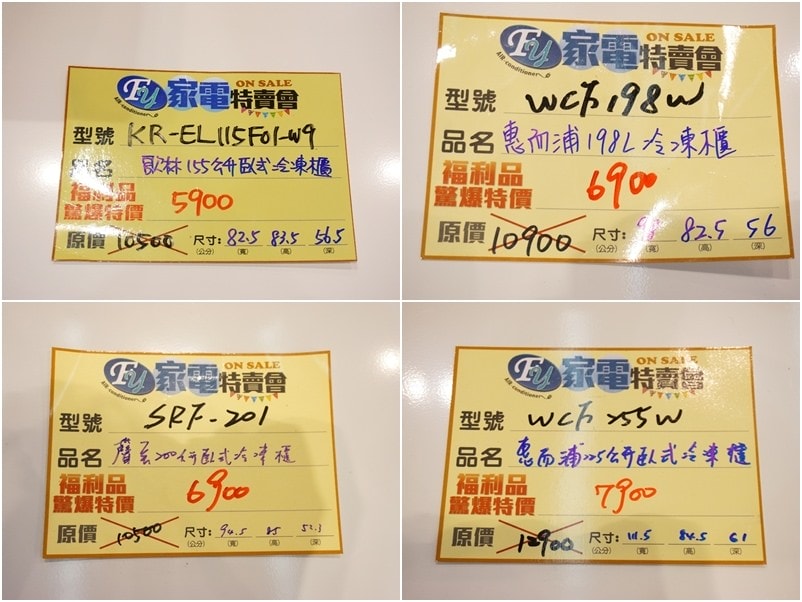 FU 家電特賣會 ON SALE
AIR-conditioner
型號 KR-EL115F01-W9
品名 歌林155公升臥式冷凍櫃
福利品
驚爆特價 5900
原價 10500 尺寸: 82.5 83.5 56.5
(公分) (寬) (高) (深)
FU 家電特賣會 ON SALE
AIR-conditioner
型號 WCF198W
品名 惠而浦198L冷凍櫃
福利品
驚爆特價 6900
原價 10900 尺寸: 82.5 56
(公分) (寬) (高) (深)
FU 家電特賣會 ON SALE
AIR-conditioner
型號 SRF-201
品名 200公升臥式冷凍櫃
福利品
驚爆特價 6900
原價 10500 尺寸: 94.5 85 52.3
(公分) (寬) (高) (深)
FU 家電特賣會 ON SALE
AIR-conditioner
型號 WCF255W
品名 惠而浦225公升臥式冷凍櫃
福利品
驚爆特價 7900
原價 12900 尺寸: 111.5 84.5 61
(公分) (寬) (高) (深)